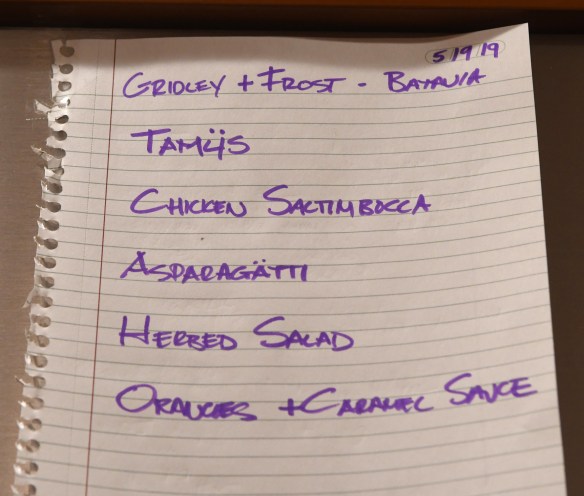 5/9/19
GRIDLEY + FROST - BATAVIA
TAMIJS
CHICKEN SALTIMBOCCA
ASPARAGÄTTI
HERBED SALAD
ORANGES + CARAMEL SAUCE